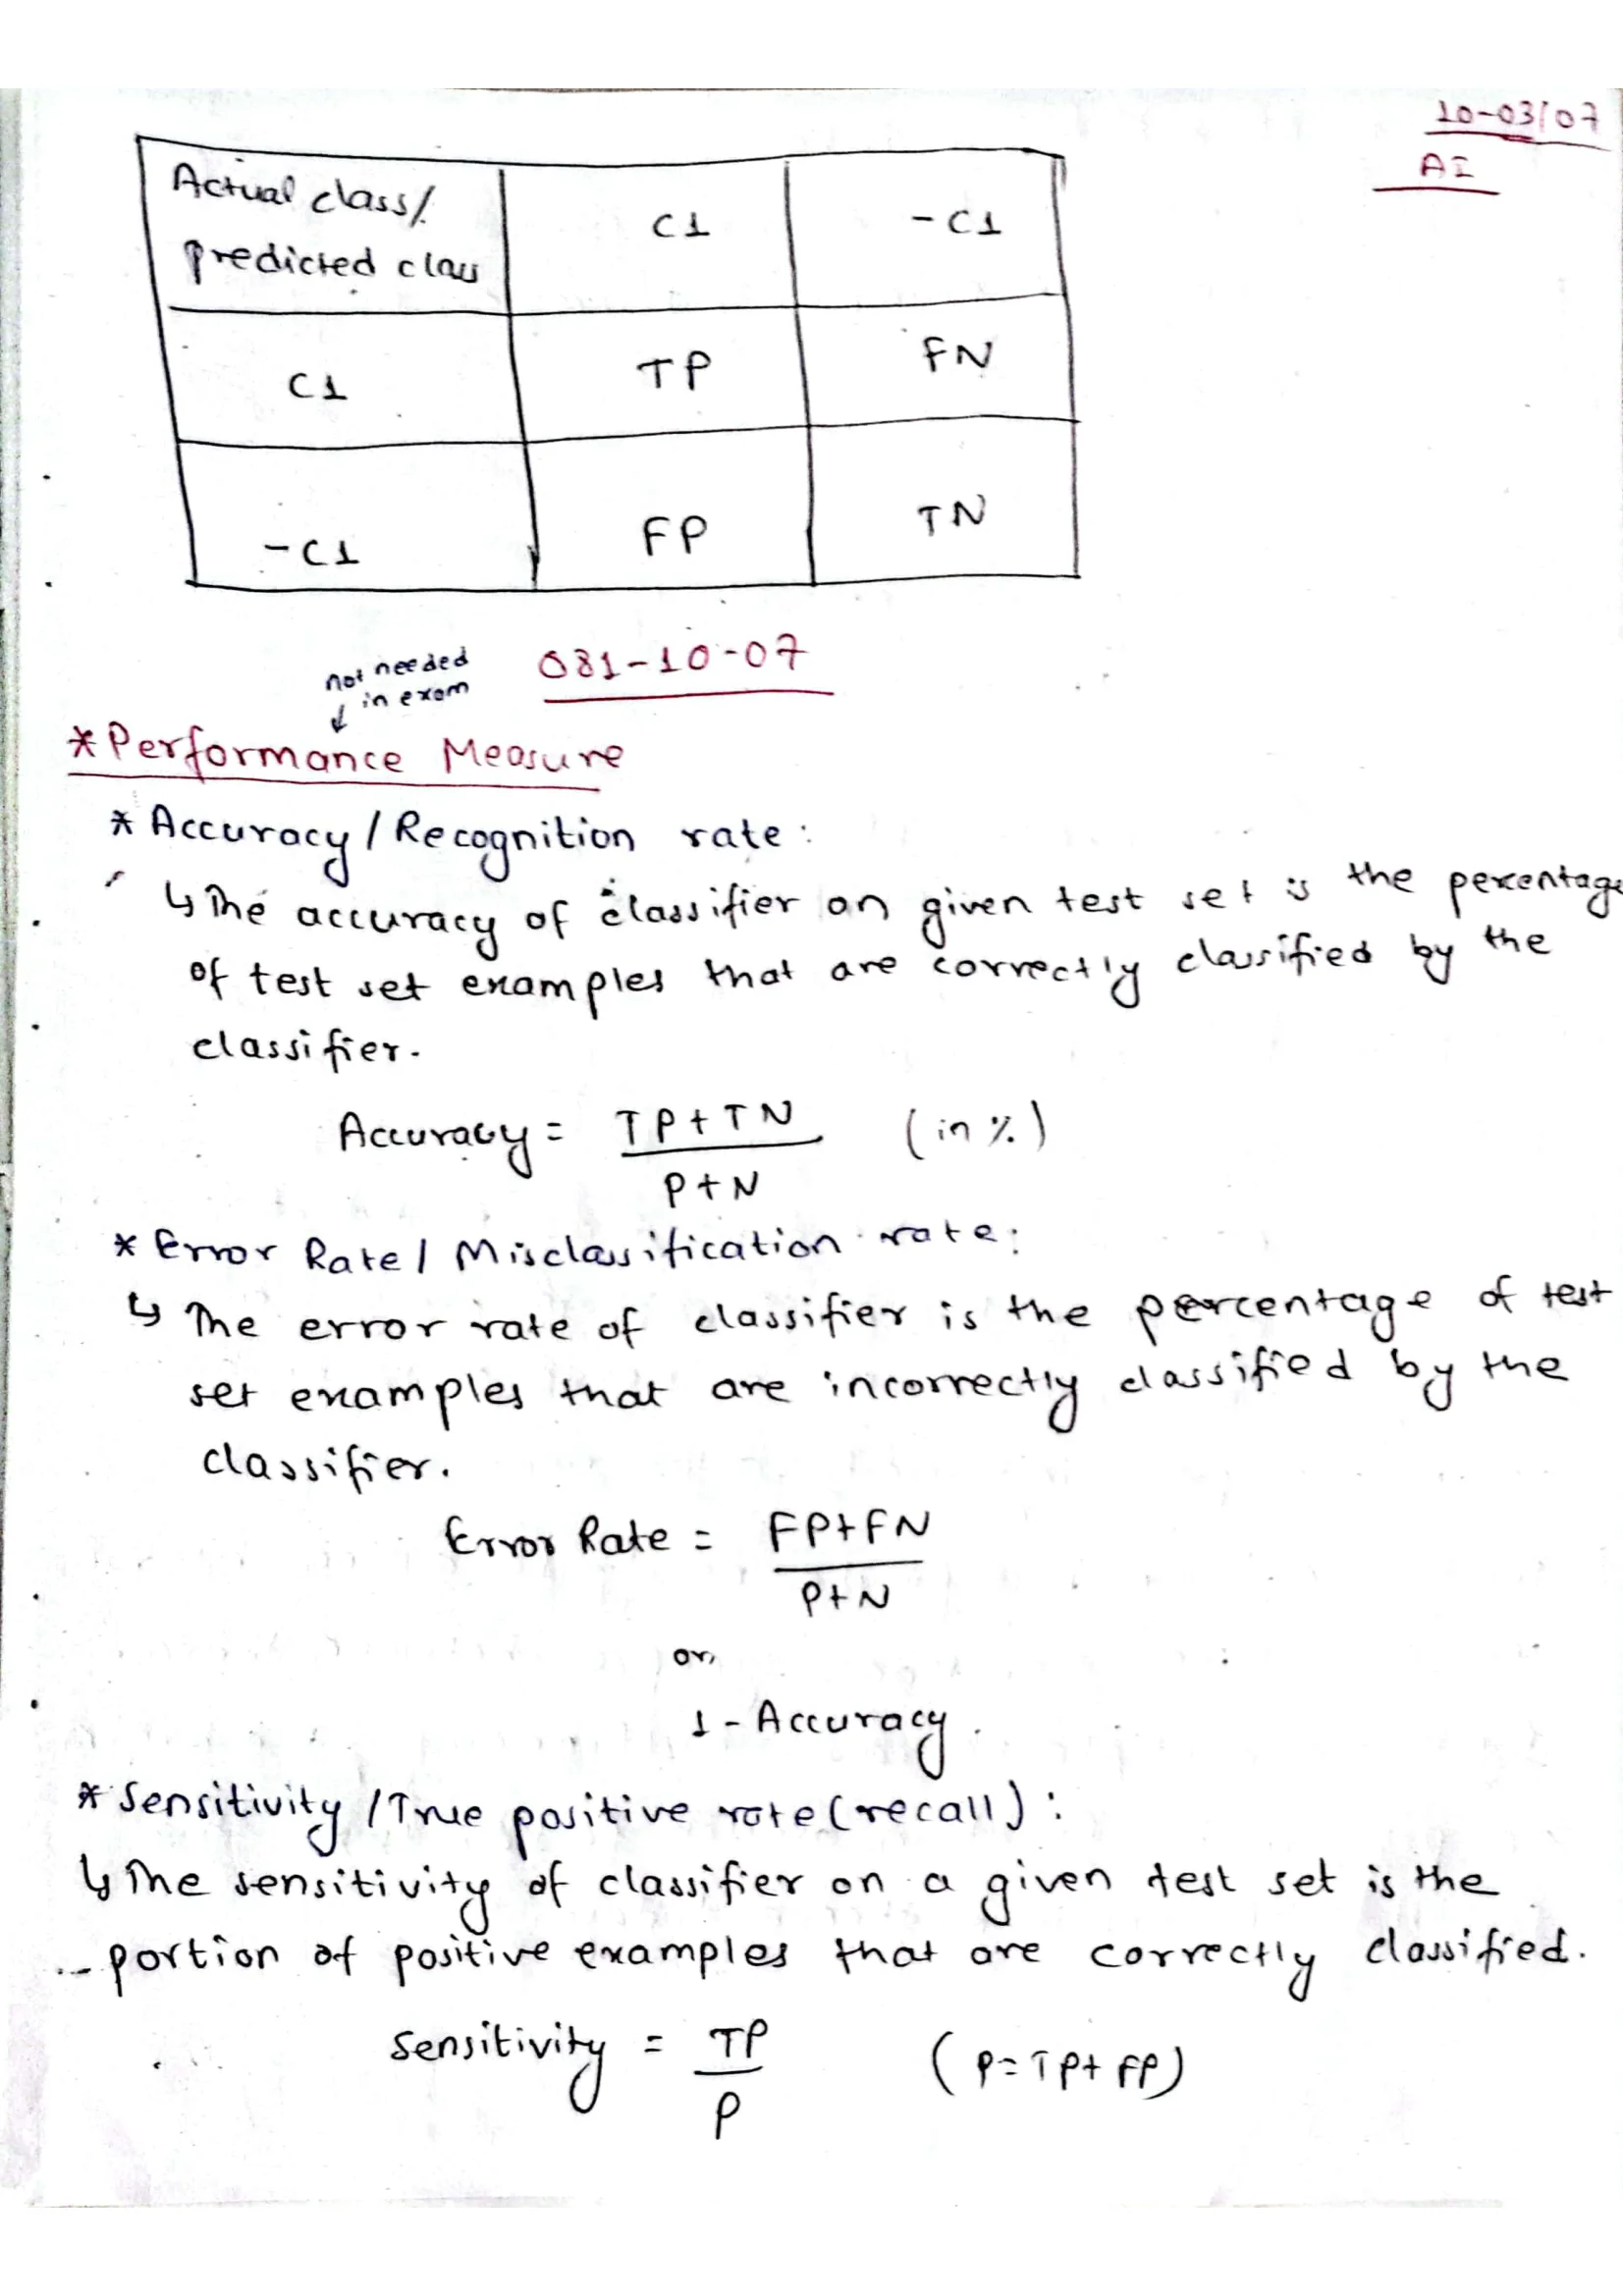 10-03/07
AI
Actual class/ C1 -C1
predicted class
C1 TP FN
-C1 FP TN
not needed
in exam
081-10-07
* Performance Measure
* Accuracy / Recognition rate:
↳ The accuracy of classifier on given test set is the percentage
of test set examples that are correctly classified by the
classifier.
Accuracy = TP+TN (in %)
P+N
* Error Rate / Misclassification rate:
↳ The error rate of classifier is the percentage of test
set examples that are incorrectly classified by the
classifier.
Error Rate = FP+FN
P+N
or,
1 - Accuracy.
* Sensitivity / True positive rate (recall):
↳ The sensitivity of classifier on a given test set is the
portion of positive examples that are correctly classified.
Sensitivity = TP (P=TP+FP)
P